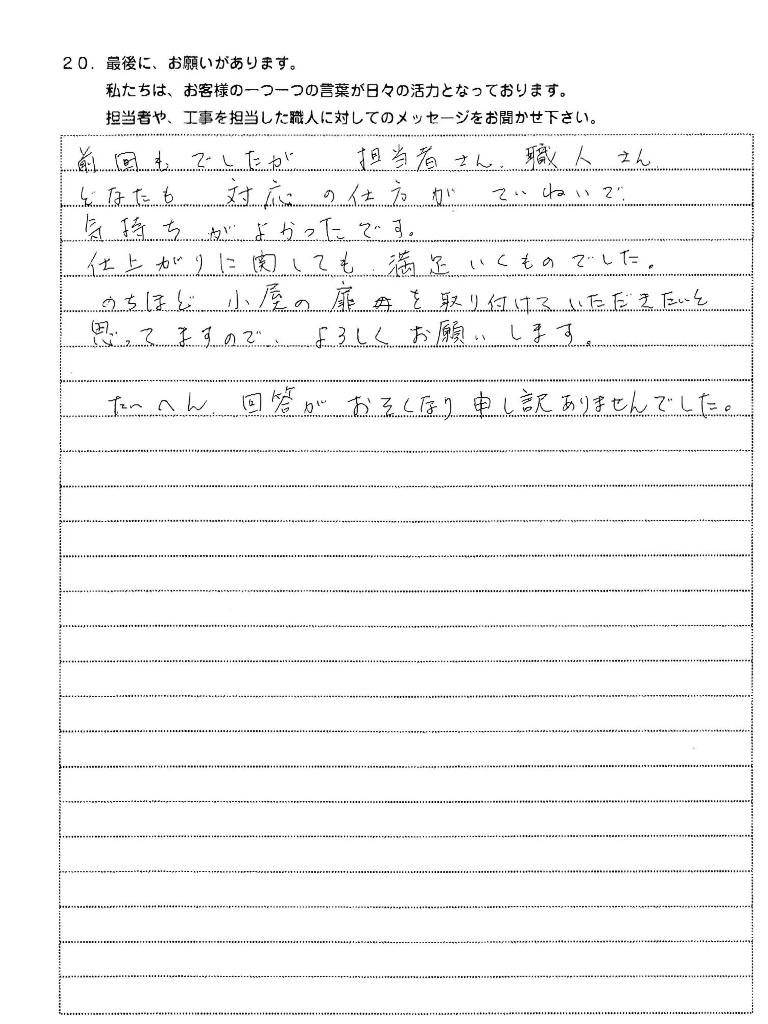 20. 最後に、お願いがあります。
私たちは、お客様の一つ一つの言葉が日々の活力となっております。
担当者や、工事を担当した職人に対してのメッセージをお聞かせ下さい。
前回もでしたが 担当者さん、職人さん
どなたも 対応の仕方が ていねいで、
気持ちがよかったです。
仕上がりに関しても、満足いくものでした。
のちほど、小屋の扉 を取り付けていただきたいと
思ってますので、よろしくお願いします。
たいへん、回答がおそくなり申し訳ありませんでした。